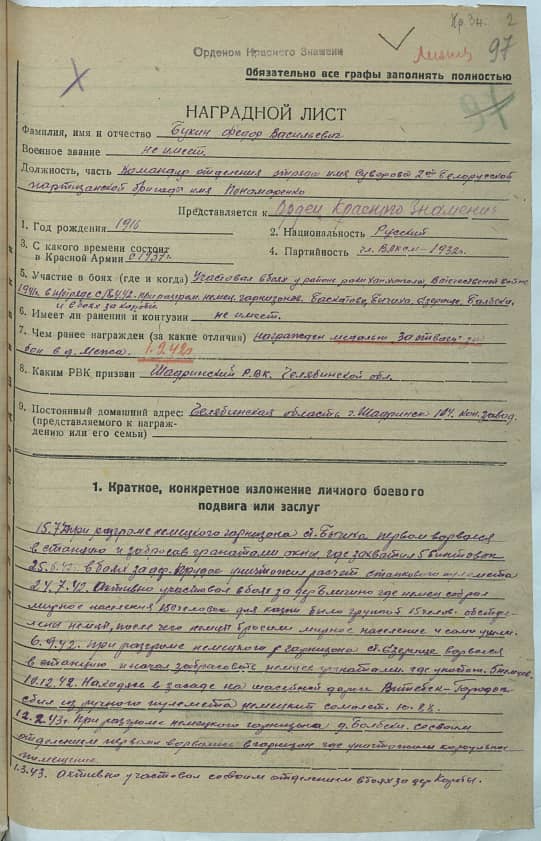 Кр. Зн. 2
Орденом Красного Знамени
97
Обязательно все графы заполнять полностью
НАГРАДНОЙ ЛИСТ
Фамилия, имя и отчество Букин Федор Васильевич
Военное звание не имеет
Должность, часть Командир отделения отряда имя Суворова 2ой Белорусской
партизанской бригады имя Пономаренко
Представляется к Орден Красного Знамения
1. Год рождения 1916 2. Национальность Русский
3. С какого времени состоит
в Красной Армии с 1937г 4. Партийность чл. ВЛКСМ – 1932г.
5. Участие в боях (где и когда) Участвовал в боях у района реки Отечественной войне
1941г. в п/отряде с 1942. при разгром. немец. гарнизонов. Баскатово, Бычиха, Езерище, Болбеки.
и в боях за Коробы
6. Имеет ли ранения и контузии не имеет.
7. Чем ранее награжден (за какие отличия) награжден медалью За отвагу за
бои в д. Межа. 1.2.42г
8. Каким РВК призван Шадринский Р.В.К. Челябинской обл.
9. Постоянный домашний адрес: Челябинская область г. Шадринск 104. кон. завод.
(представляемого к награж-
дению или его семьи)
1. Краткое, конкретное изложение личного боевого
подвига или заслуг
При разгроме немецкого гарнизона ст. Бычиха первым ворвался
в станцию и забросав гранатами окна, где захватил 5 винтовок
25.6.42. в бою за уничтожил расчет станкового пулемета
24.7.42. Активно участвовал в бою за дер. где немец собрал
мирное население 150 человек для казни было группой 15 челов. обстре-
лены немцы, после чего немцы бросили мирное население и сами ушли.
6.9.42. При разгроме немецкого гарнизона ст. Езерище ворвался
в станцию и начал забрасовать немцев гранатами где уничтож. 5 немцов.
10.12.42. Находясь в засаде на шассейной дороги Витебск – Городок
сбил из ручного пулемета немецкий самолет Ю-88.
12.2.43г. При разгроме немецкого гарнизона д. Болбеки. со своим
отделением первым ворвался в гарнизон где уничтожил караульное
помещение.
1.3.43. Активно участвовал со своим отделением в боях за дер Коробы.